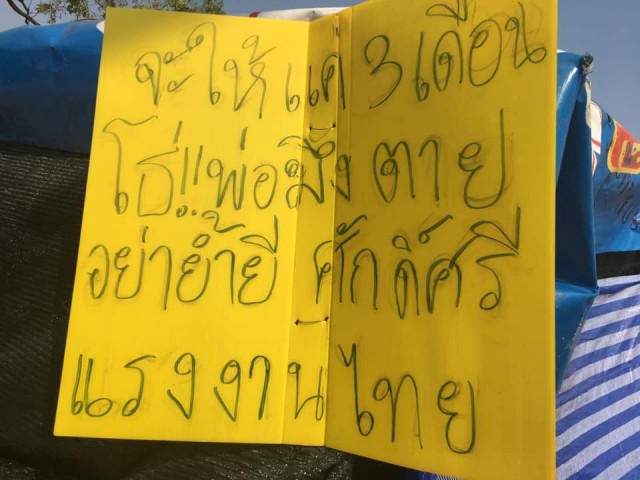 จะให้แค่ 3 เดือน
โธ่!! พ่อมึงตาย
อย่าย้ำยี ศักดิ์ศรี
แรงงานไทย